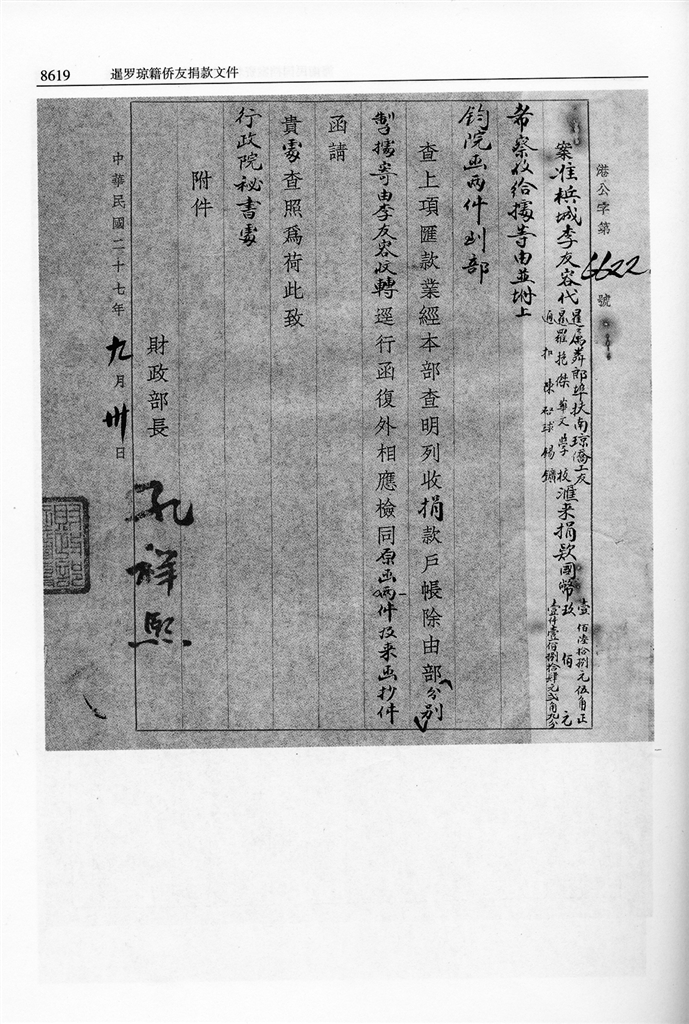 8619 暹罗琼籍侨友捐款文件
港公字第6622號
案准槟城李友容代
暹属莽郎埠扶南琼僑工友
暹羅挽傑華文學校
匯来捐款國幣
壹佰陸拾捌元伍角正
玖佰元
壹仟壹佰捌拾肆元弍角九分
希察收给據等由並坿上
鈞院函两件到部
查上項匯款業經本部查明列收捐款戶帳除由部分别
製據寄由李友容收轉逕行函復外相應檢同原函两件及来函抄件
函請
貴處查照爲荷此致
行政院秘書處
附件
財政部長
孔祥熙
中華民國二十七年九月卅日